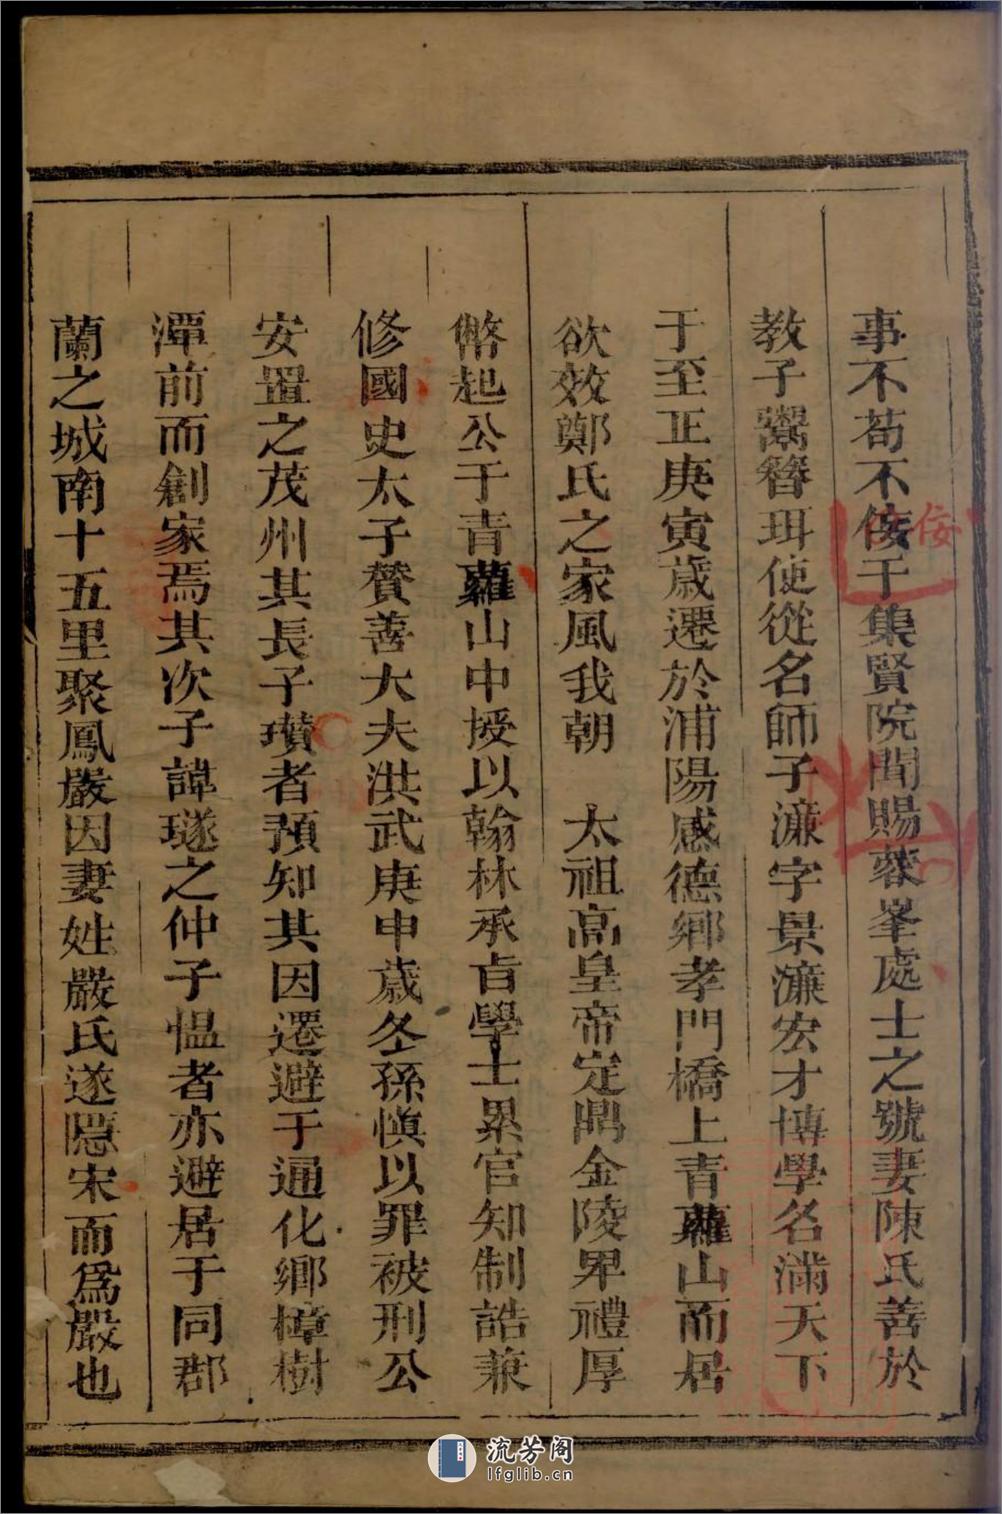 事不苟不侫于集賢院聞賜蓉峯處士之號妻陳氏善於
教子鬻簪珥使從名師子濂字景濂宏才博學名滿天下
于至正庚寅歲遷於浦陽感德鄉孝門橋上青蘿山而居
欲效鄭氏之家風我朝　太祖高皇帝定鼎金陵卑禮厚
幣起公于青蘿山中授以翰林承旨學士累官知制誥兼
修國史太子贊善大夫洪武庚申歲冬孫慎以罪被刑公
安置之茂州其長子瓚者預知其因遷避于通化鄉樟樹
潭前而創家焉其次子諱璲之仲子愠者亦避居于同郡
蘭之城南十五里聚鳳巖因妻姓嚴氏遂隱宋而爲嚴也
佞
流芳阁
lfglib.cn